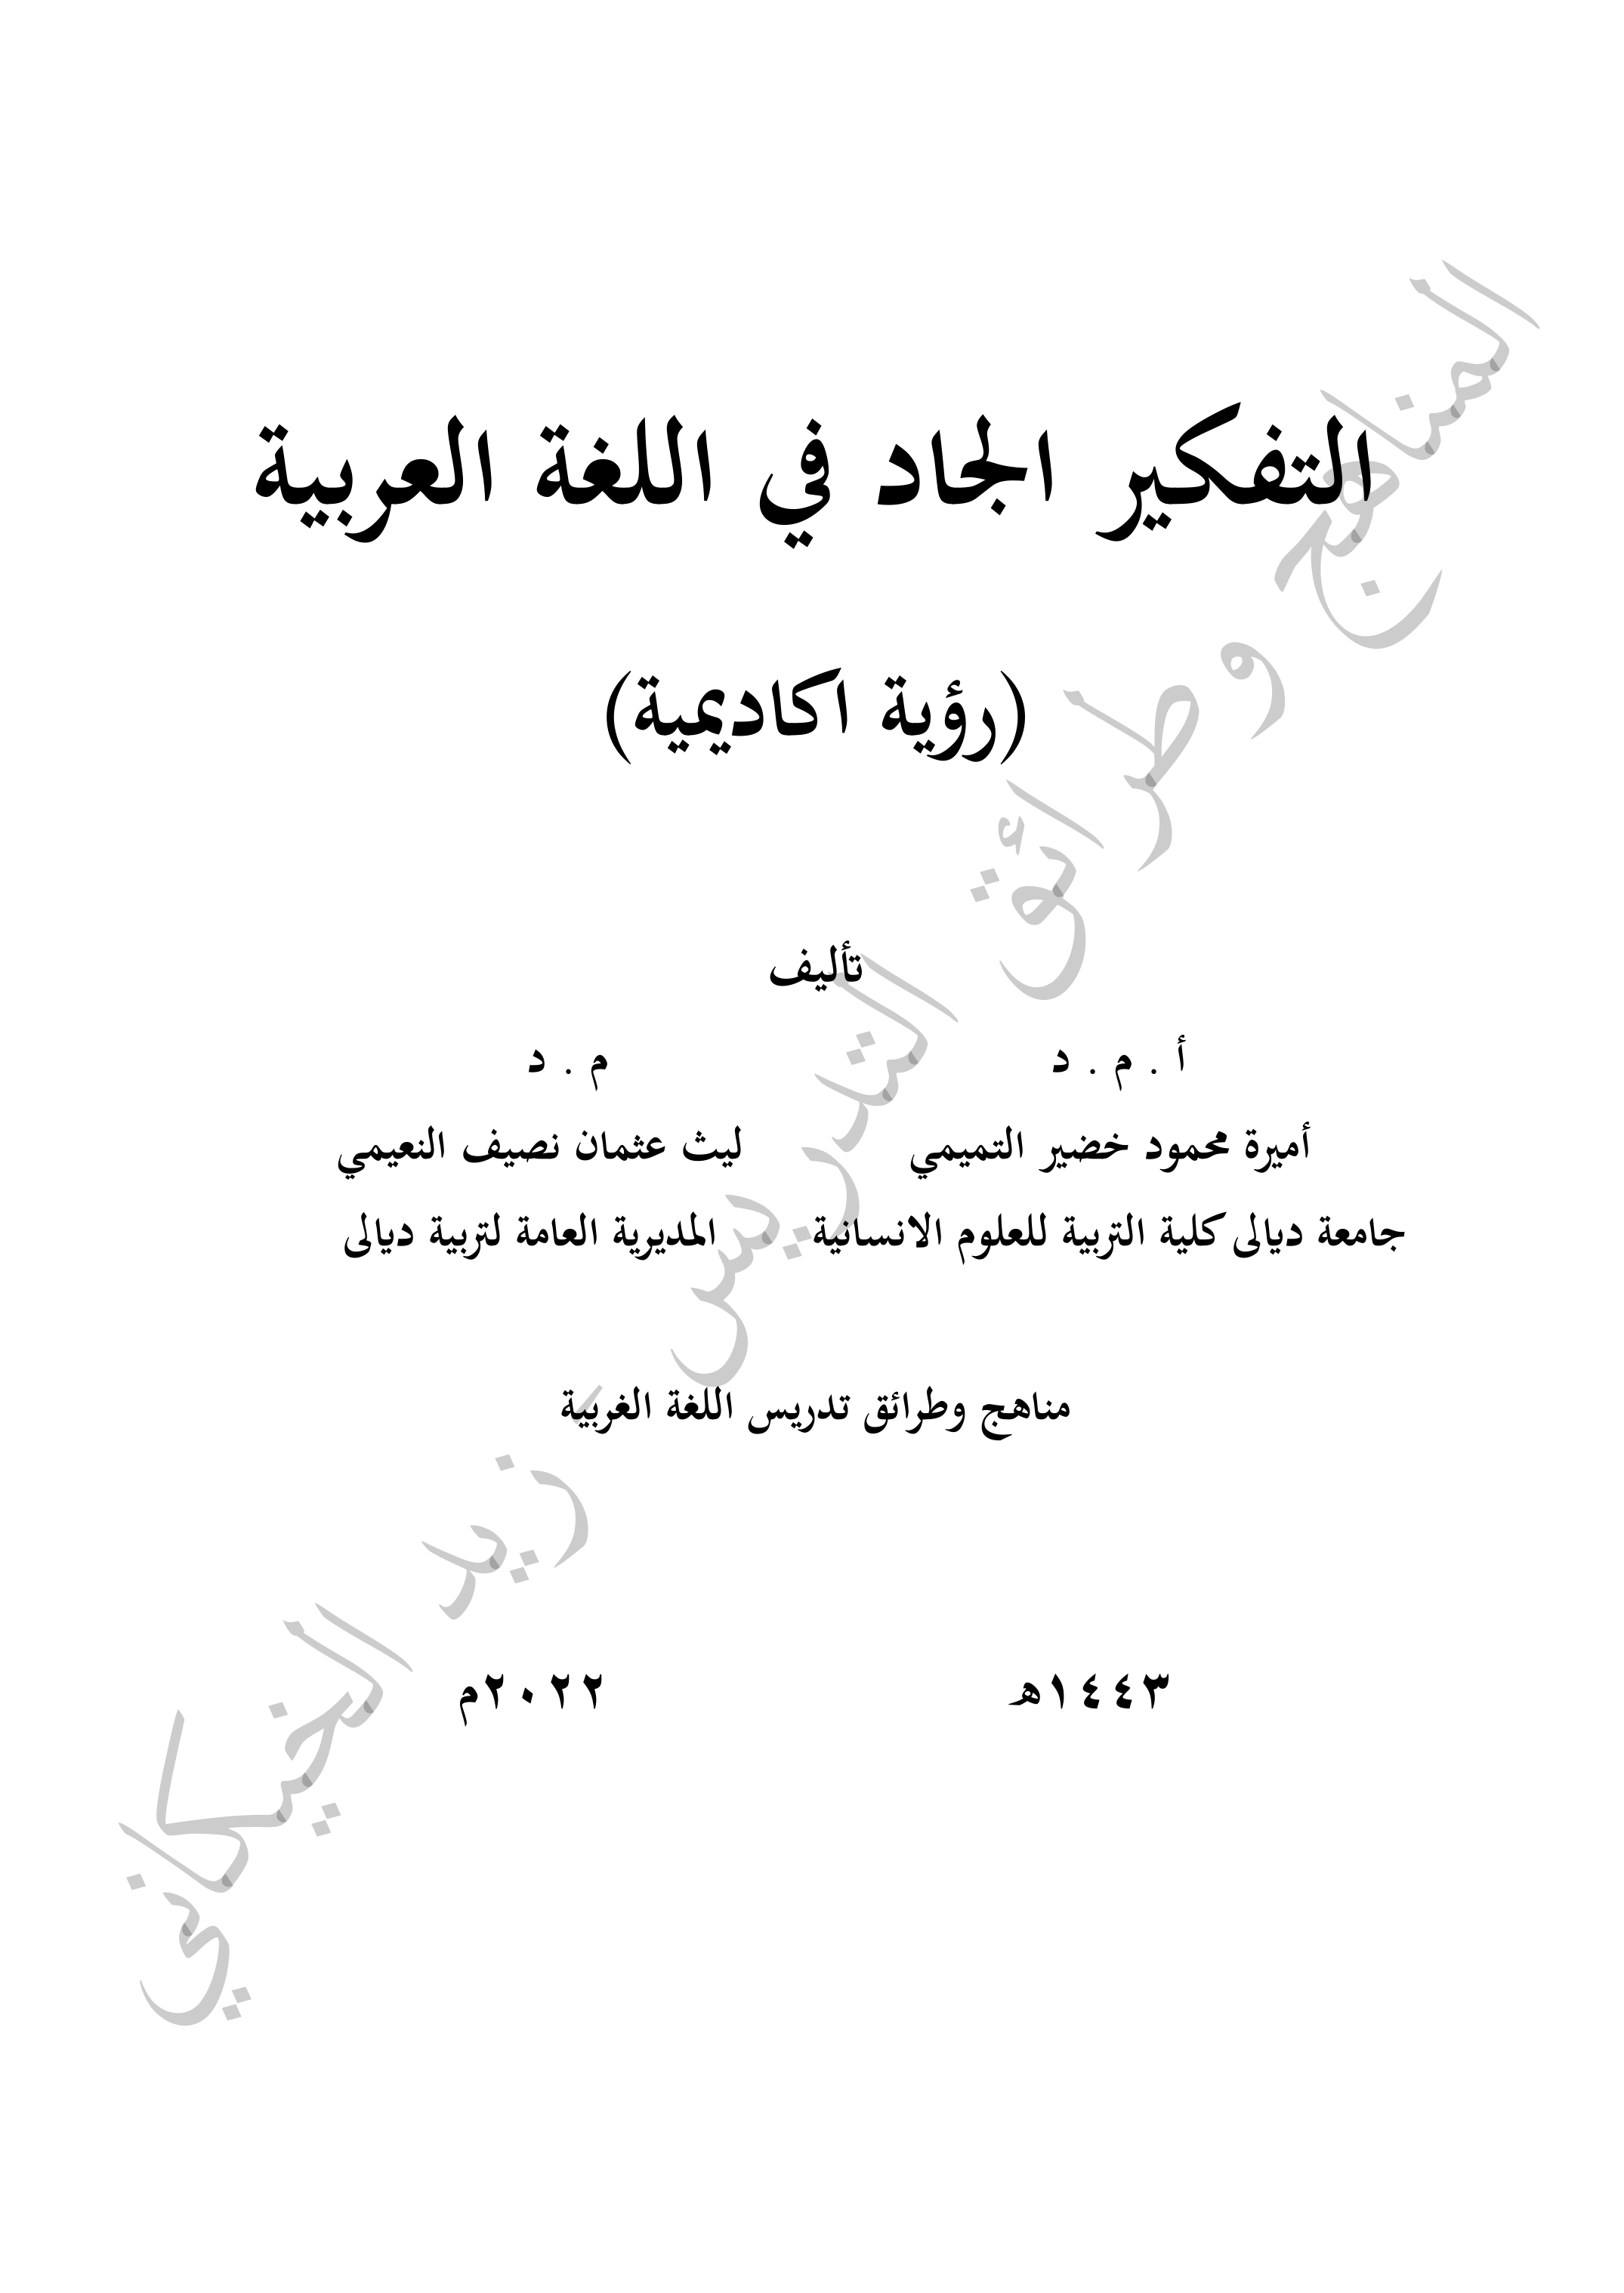 التفكير الجاد في اللغة العربية
(رؤية اكاديمية)
تأليف
أ . م . د
م . د
أميرة محمود خضير التميمي
ليث عثمان نصيف النعيمي
جامعة ديالى كلية التربية للعلوم الانسانية
المديرية العامة لتربية ديالى
مناهج وطرائق تدريس اللغة الغربية
١٤٤٣هـ
٢٠٢٢م
المناهج وطرائق التدريس - زيد الخيكاني